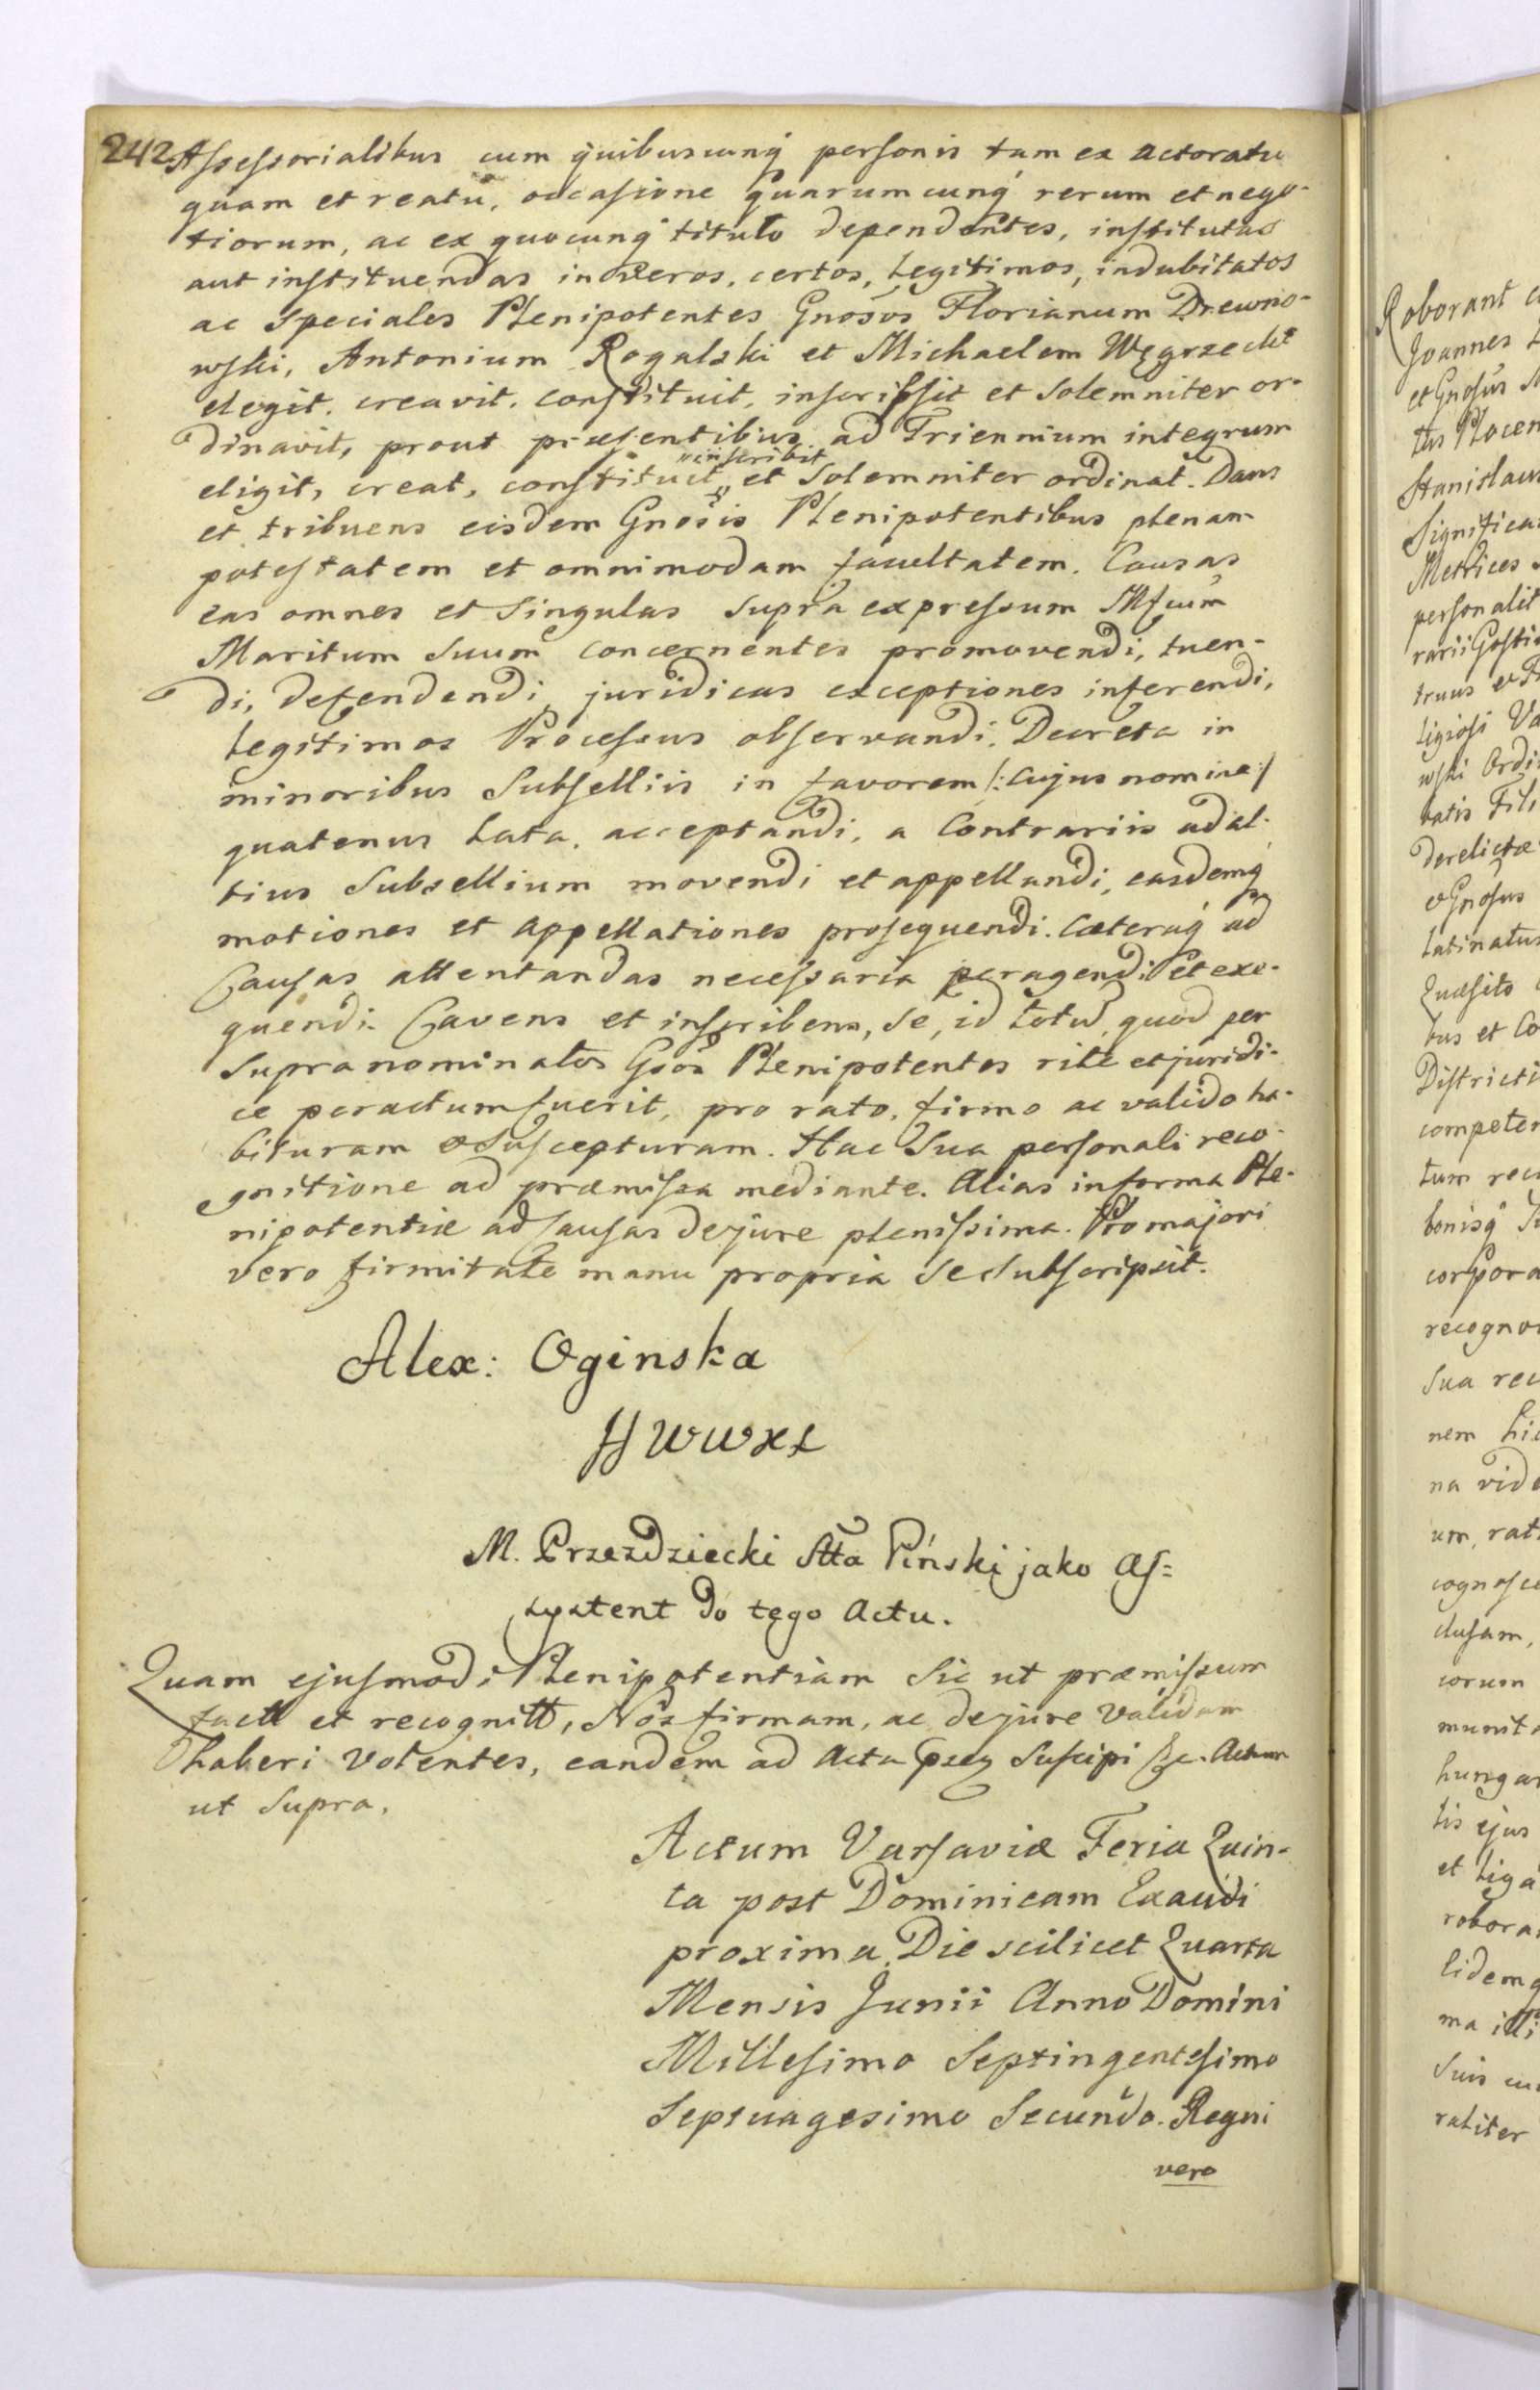 242
Assessorialibus cum quibuscunq́ personis tam ex actoratu
quam et reatu, occasione quarumcunq́ rerum et nego-
tiorum, ac ex quocunq́ titulo dependentes, institutas
aut instituendas in veros, certos, legitimos, indubitatos
ac speciales Plenipotentes Gnosos Florianum Drewno-
wski, Antonium Rogalski et Michaelem Węgrzecki
elegit, creavit, constituit, inscripsit et solemniter or-
dinavit, prout præsentibus ad Triennium integrum
eligit, creat, constituit, inscribit et solemniter ordinat. Dans
et tribuens eisdem Gnosis Plenipotentibus plenam
potestatem et omnimodam facultatem. Causas
eas omnes et singulas supra expressum Mfcum
Maritum suum concernentes promovendi, tuen-
di, defendendi, juridicas exceptiones inferendi,
legitimos Processus observandi. Decreta in
minoribus Subselliis in favorem /: cujus nomine :/
quatenus lata, acceptandi, a Contrariis ad al-
tius Subsellium movendi et appellandi, easdemq́
motiones et appellationes prosequendi. Cæteraq́ ad
Causas attentandas necessaria peragendi et exe-
quendi. Cavens et inscribens, se, id totum quod per
supranominatos Gsos Plenipotentes rite et juridi-
ce peractum fuerit, pro rato, firmo ac valido ha-
bituram et suscepturam. Hac sua personali reco-
gnitione ad præmissa mediante. Alias in forma Ple-
nipotentiæ ad causas de jure plenissima. Pro majori
vero firmitate manu propria se subscripsit.
Alex: Oginska
HWWXL
M. Przezdziecki Stta Piński jako As=
systent do tego Actu.
Quam ejusmodi Plenipotentiam sic ut præmissum
factt et recognitt, Nos firmam, ac de jure validam
haberi volentes, eandem ad Acta psez suscipi &c. Actum
ut supra.
Actum Varsaviæ Feria Quin-
ta post Dominicam Exaudi
proxima, Die scilicet Quarta
Mensis Junii Anno Domini
Millesimo Septingentesimo
Septuagesimo Secundo. Regni
vero
Roborant
Joannes
et Gnosus
Stanislaus
Significa
Metrices
personalit
truus et
wski Ordi
batis Fili
derelictæ
et Gnosus
latinatus
Quæsito
bus et Co
Districti
competen
tum
bonisq́
corpora
recogno
sua rec
nem hi
na vide
um, rat
cognosce
clusam,
corum
munit
hungar
tis ejus
et liga
robora
lidemq
ma illi
suis cu
raliter